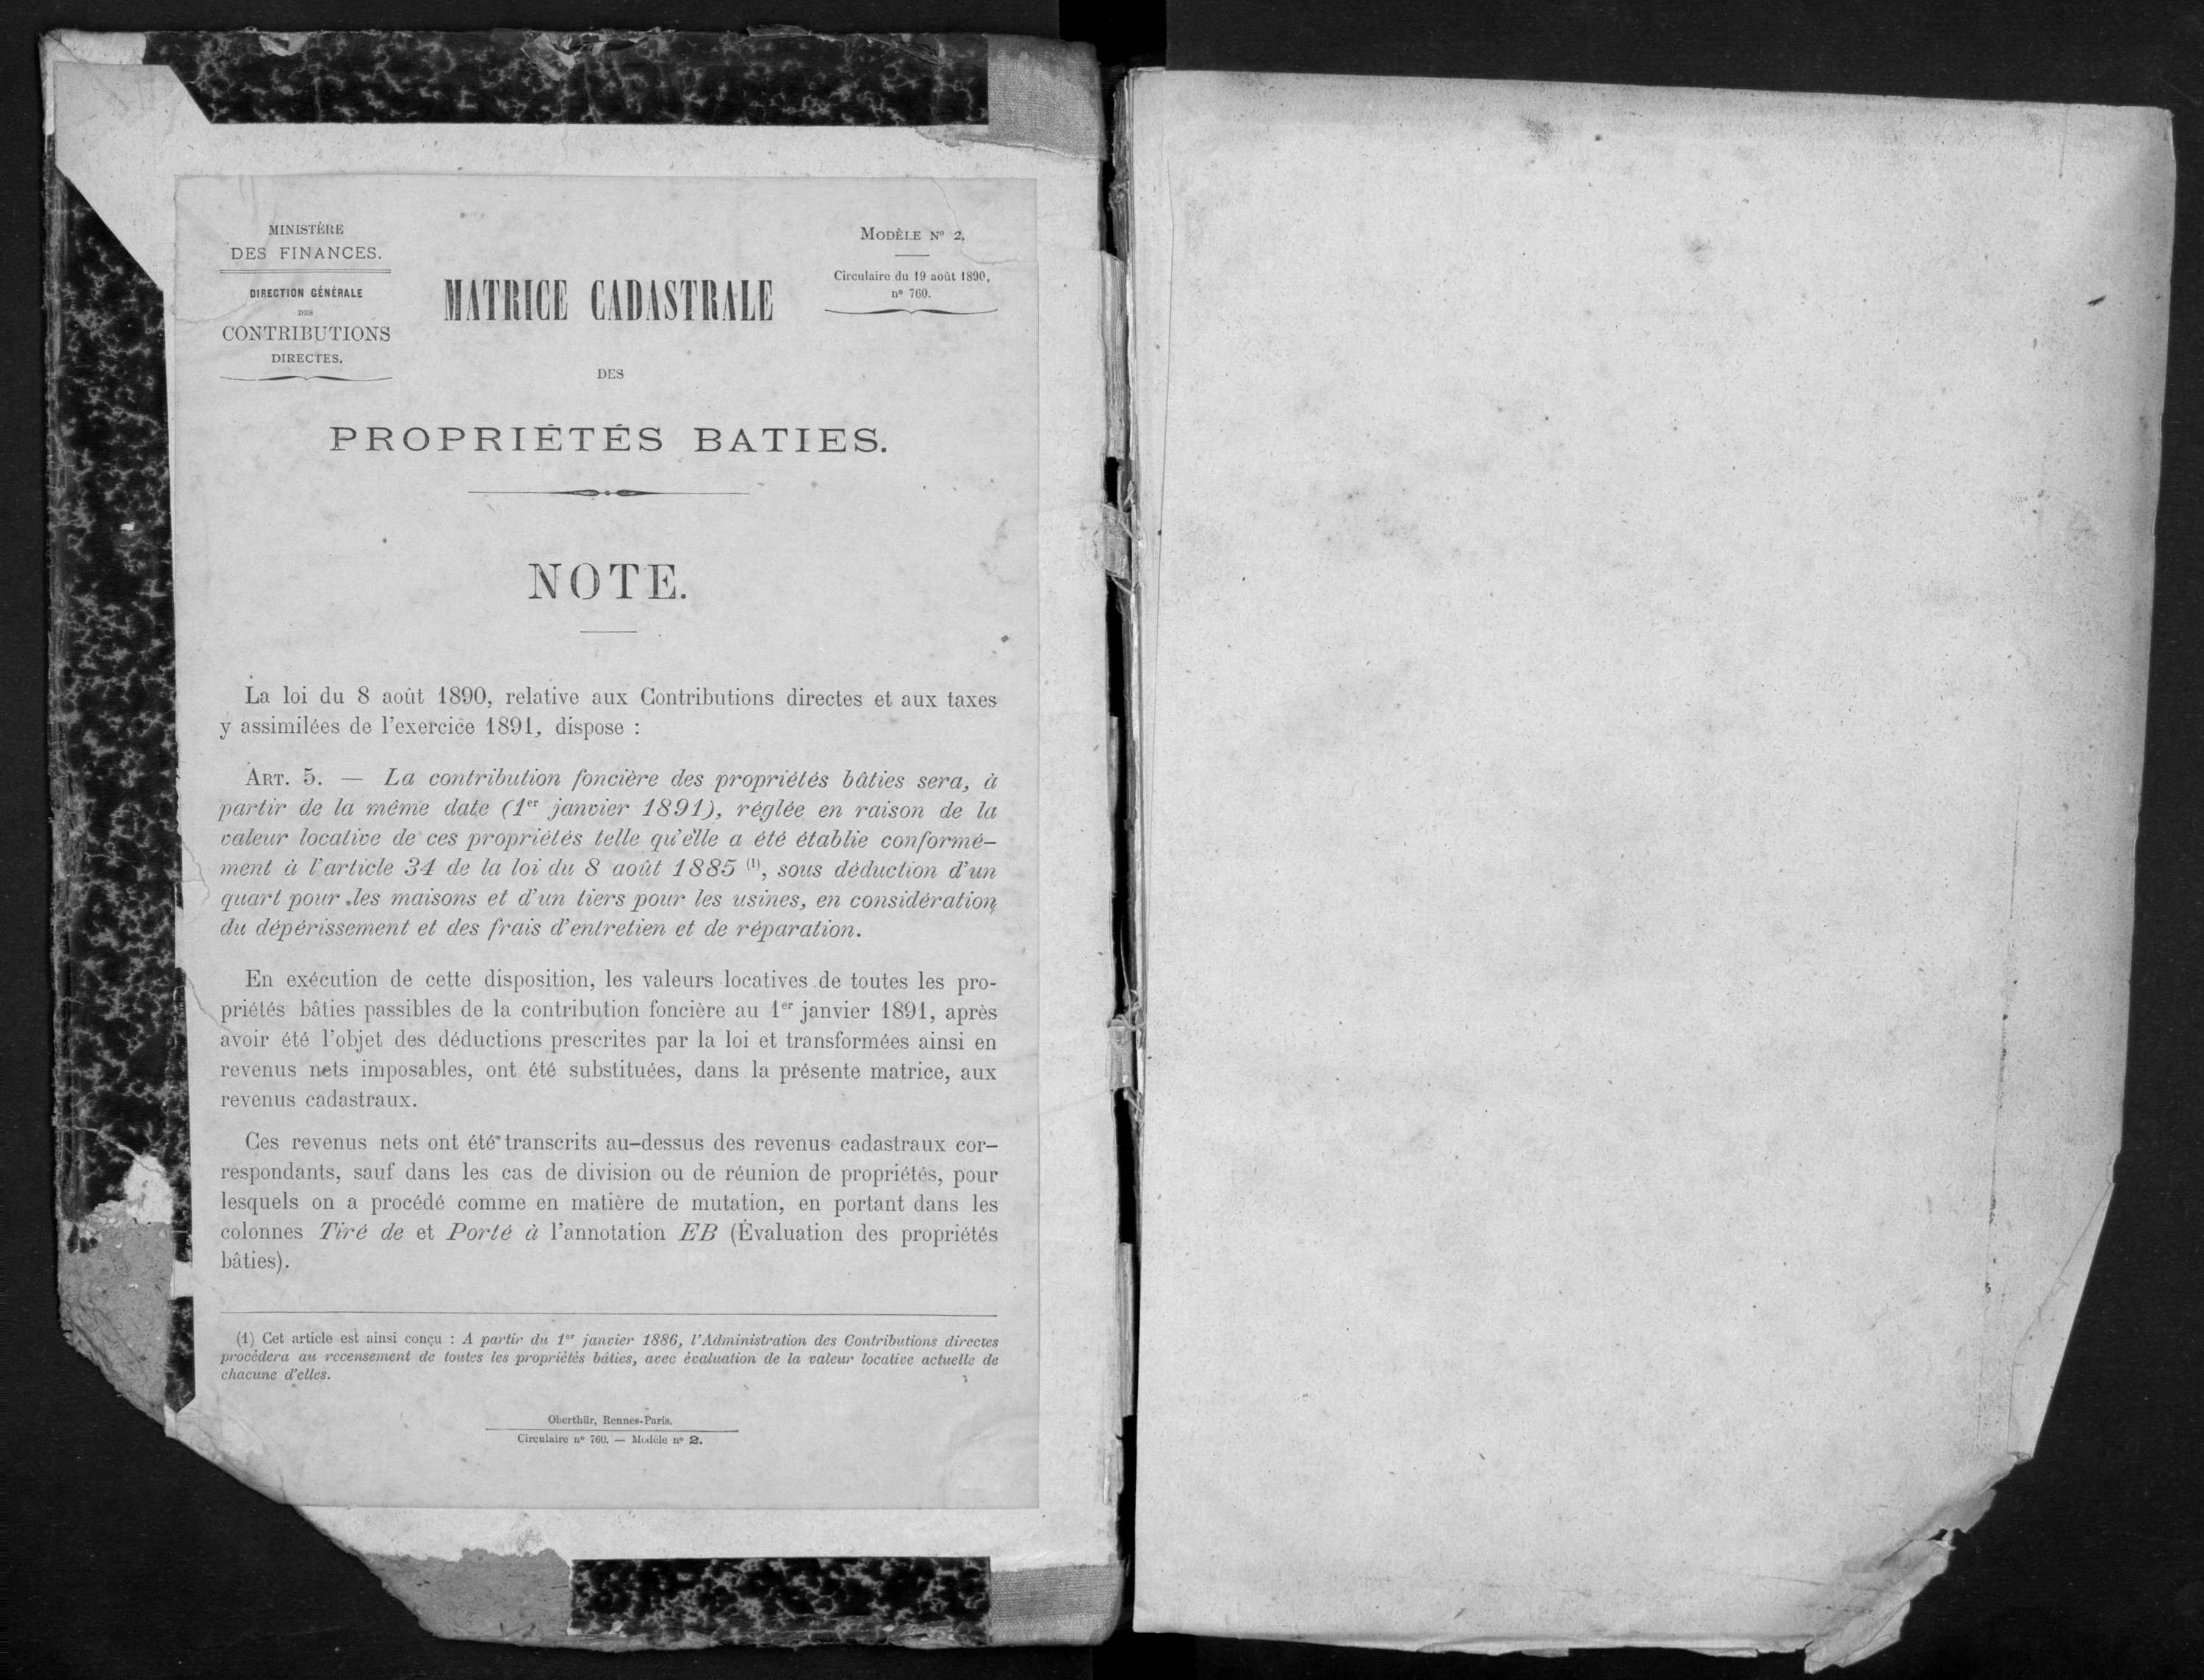 MINISTÈRE
DES FINANCES.
DIRECTION GÉNÉRALE
DES
CONTRIBUTIONS
DIRECTES.
MODÈLE Nº 2.
Circulaire du 19 août 1890,
nº 760.
MATRICE CADASTRALE
DES
PROPRIÉTÉS BATIES.
NOTE.
La loi du 8 août 1890, relative aux Contributions directes et aux taxes
y assimilées de l'exercice 1891, dispose :
ART. 5. — La contribution foncière des propriétés bâties sera, à
partir de la même date (1er janvier 1891), réglée en raison de la
valeur locative de ces propriétés telle qu'elle a été établie conformé-
ment à l'article 34 de la loi du 8 août 1885 (1), sous déduction d'un
quart pour les maisons et d'un tiers pour les usines, en considération
du dépérissement et des frais d'entretien et de réparation.
En exécution de cette disposition, les valeurs locatives de toutes les pro-
priétés bâties passibles de la contribution foncière au 1er janvier 1891, après
avoir été l'objet des déductions prescrites par la loi et transformées ainsi en
revenus nets imposables, ont été substituées, dans la présente matrice, aux
revenus cadastraux.
Ces revenus nets ont été transcrits au-dessus des revenus cadastraux cor-
respondants, sauf dans les cas de division ou de réunion de propriétés, pour
lesquels on a procédé comme en matière de mutation, en portant dans les
colonnes Tiré de et Porté à l'annotation EB (Évaluation des propriétés
bâties).
(1) Cet article est ainsi conçu : A partir du 1er janvier 1886, l'Administration des Contributions directes
procédera au recensement de toutes les propriétés bâties, avec évaluation de la valeur locative actuelle de
chacune d'elles.
Oberthür, Rennes-Paris.
Circulaire nº 760. — Modèle nº 2.